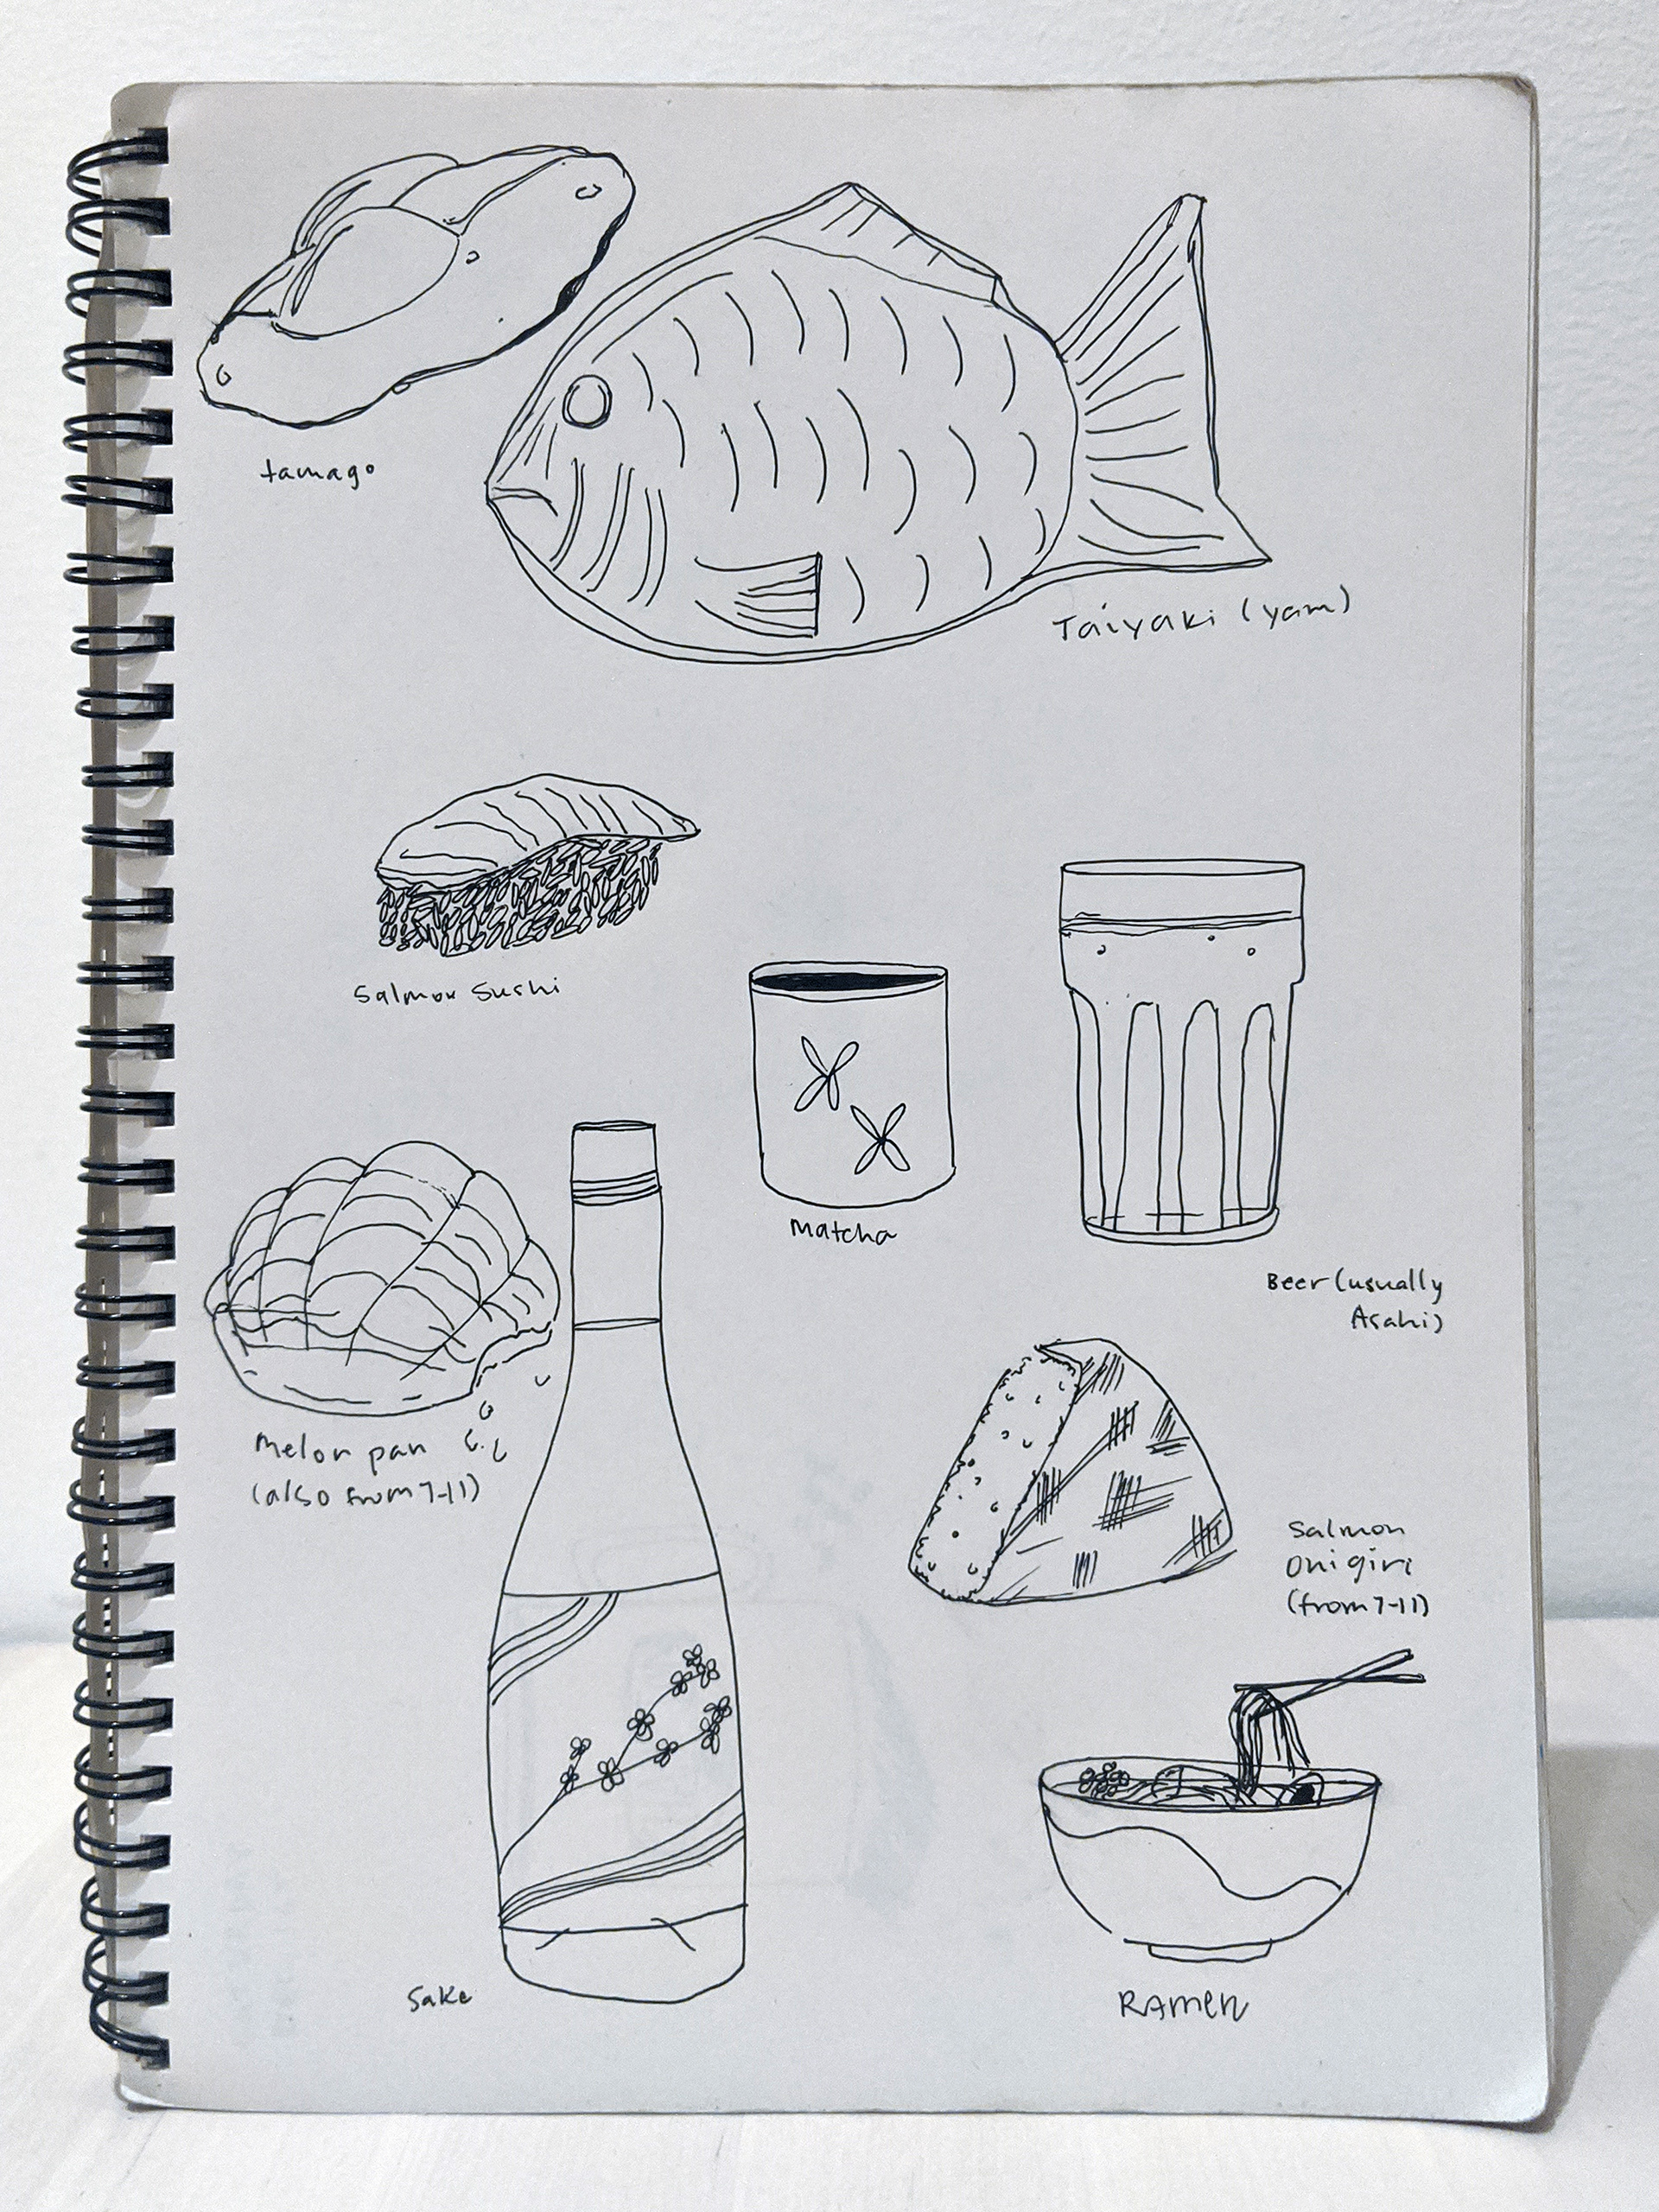 tamago
Taiyaki (yam)
Salmon Sushi
Matcha
Beer (usually
Asahi)
Melon pan
(also from 7-11)
Salmon
Onigiri
(from 7-11)
Sake
RAMEN